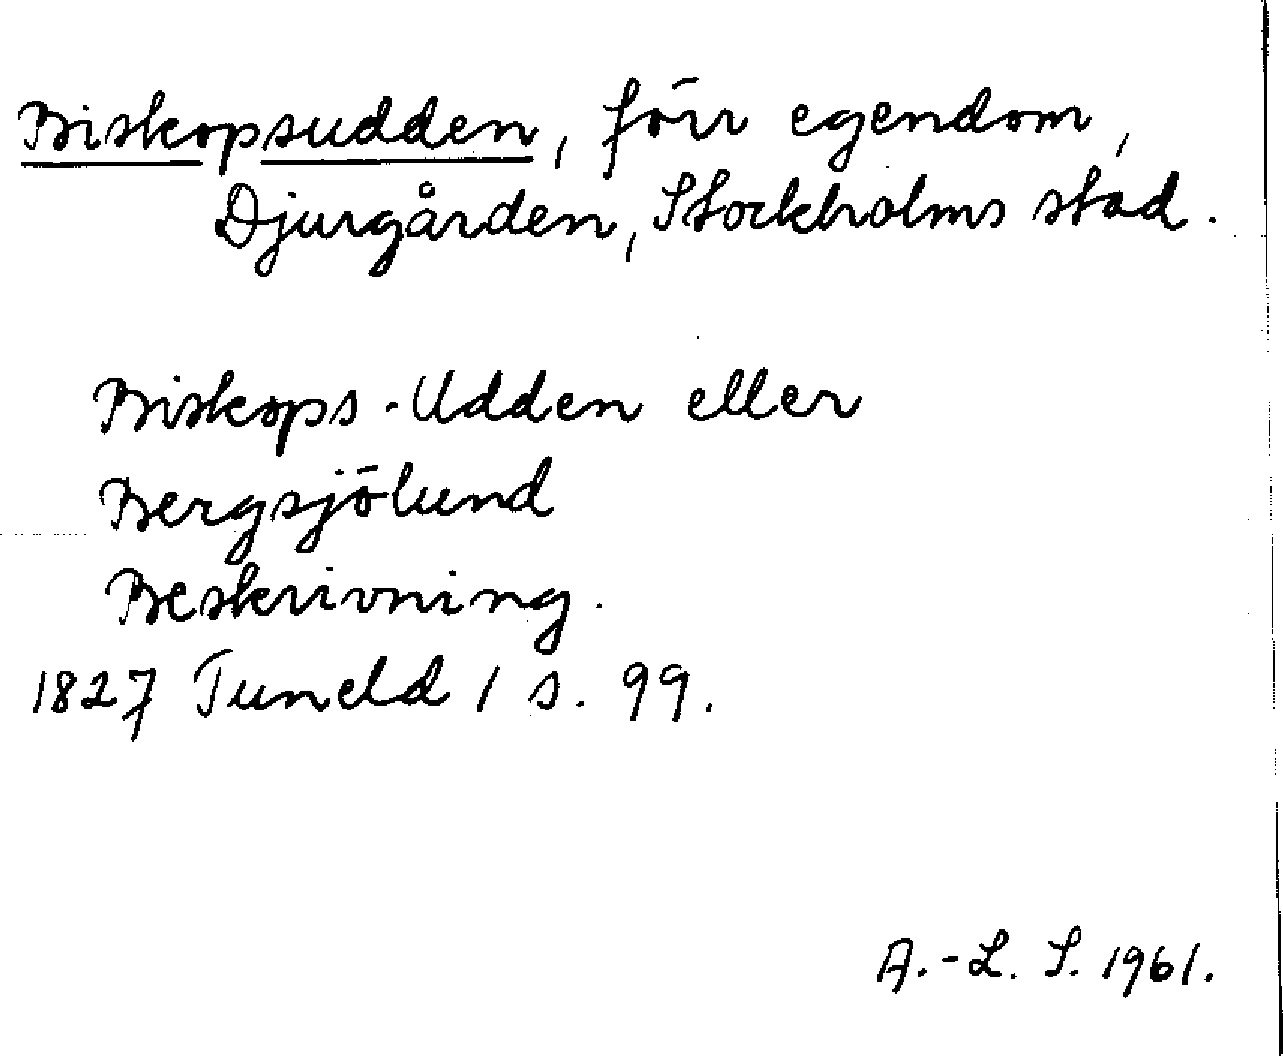 Biskopsudden, förr egendom,
Djurgården, Stockholms stad.
Biskops-Udden eller
Bergsjölund
Beskrivning.
1827 Tuneld 1 s. 99.
A.-L. S. 1961.